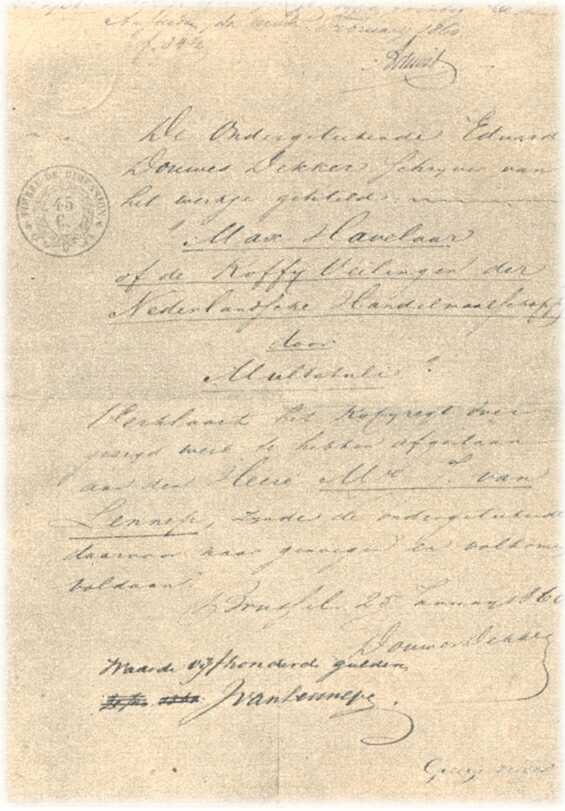 Februarij 1860
De Ondergeteekende Eduard
Douwes Dekker Schryver van
het werkje getiteld:
"Max Havelaar
of de Koffy Veilingen der
Nederlandsche Handelmaatschappy
door
Multatuli"
Verklaart het Kopyregt over
gezegd werk te hebben afgestaan
aan den Heere Mr. J. van
Lennep, zynde de ondergeteekende
daarvoor naar genoegen en volkomen
voldaan
Brussel 25 January 1860
Douwes Dekker
Waarde vyfhonderd gulden
JvanLennep.
TIMBRE DE DIMENSION
45
C.